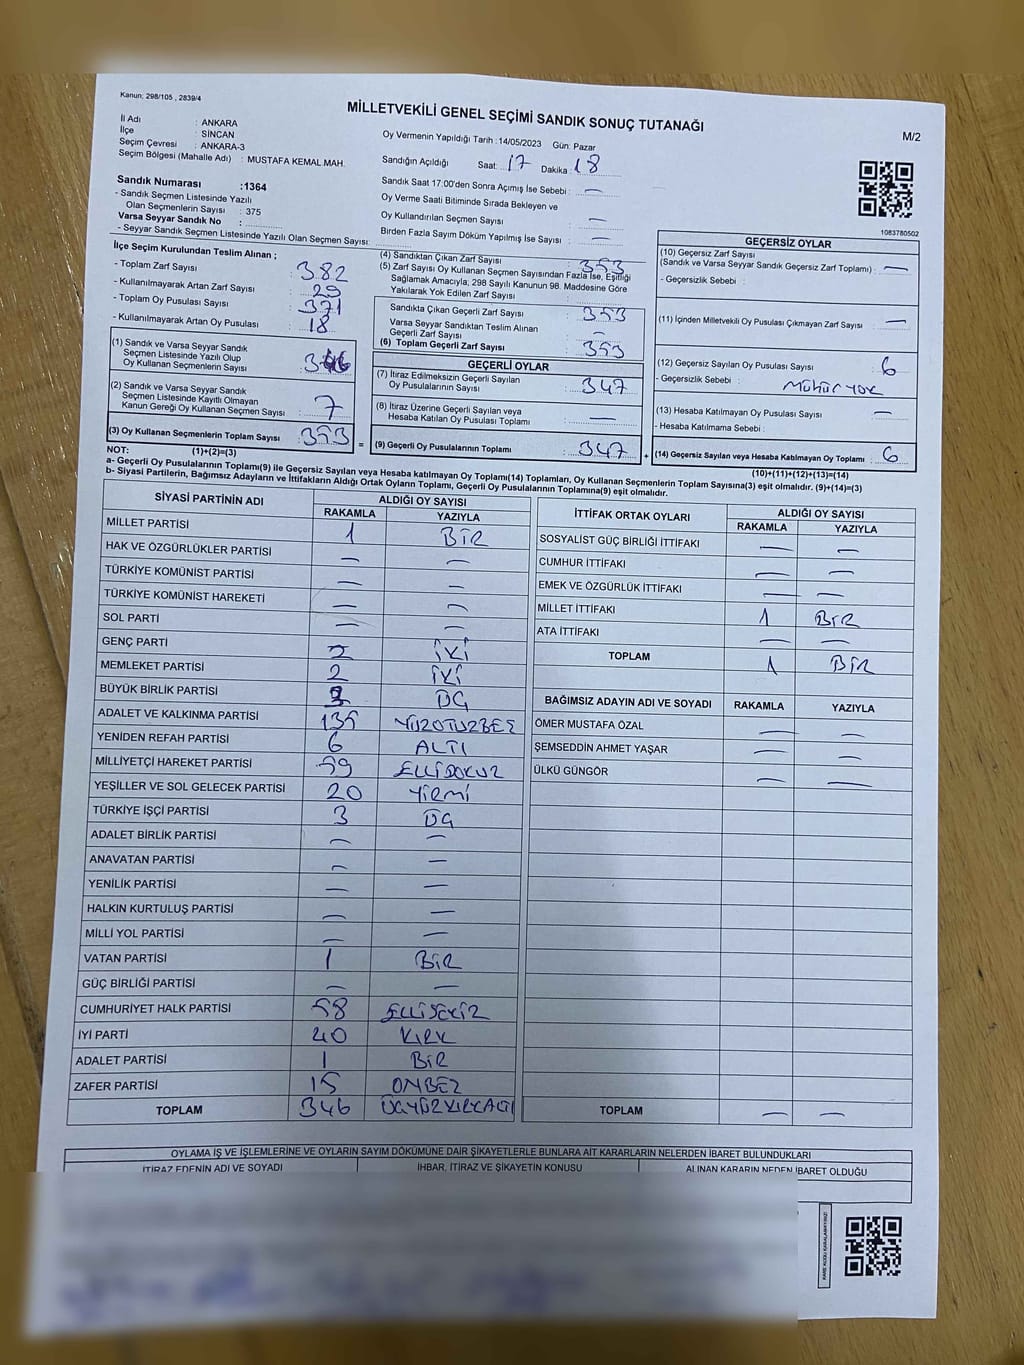 Kanun; 298/105 , 2839/4
MİLLETVEKİLİ GENEL SEÇİMİ SANDIK SONUÇ TUTANAĞI
M/2
İl Adı : ANKARA
İlçe : SİNCAN
Seçim Çevresi : ANKARA-3
Seçim Bölgesi (Mahalle Adı) : MUSTAFA KEMAL MAH.
Oy Vermenin Yapıldığı Tarih :14/05/2023 Gün: Pazar
Sandığın Açıldığı Saat: 17 Dakika: 18
Sandık Numarası :1364
- Sandık Seçmen Listesinde Yazılı
Olan Seçmenlerin Sayısı : 375
Varsa Seyyar Sandık No :
- Seyyar Sandık Seçmen Listesinde Yazılı Olan Seçmen Sayısı:
Sandık Saat 17:00'den Sonra Açımış İse Sebebi : —
Oy Verme Saati Bitiminde Sırada Bekleyen ve
Oy Kullandırılan Seçmen Sayısı : —
Birden Fazla Sayım Döküm Yapılmış İse Sayısı : —
1083780502
İlçe Seçim Kurulundan Teslim Alınan ;
- Toplam Zarf Sayısı : 382
- Kullanılmayarak Artan Zarf Sayısı : 29
- Toplam Oy Pusulası Sayısı : 371
- Kullanılmayarak Artan Oy Pusulası : 18
(1) Sandık ve Varsa Seyyar Sandık
Seçmen Listesinde Yazılı Olup
Oy Kullanan Seçmenlerin Sayısı : 346
(2) Sandık ve Varsa Seyyar Sandık
Seçmen Listesinde Kayıtlı Olmayan
Kanun Gereği Oy Kullanan Seçmen Sayısı : 7
(3) Oy Kullanan Seçmenlerin Toplam Sayısı : 353
(1)+(2)=(3)
(4) Sandıktan Çıkan Zarf Sayısı : 353
(5) Zarf Sayısı Oy Kullanan Seçmen Sayısından Fazla İse, Eşitliği
Sağlamak Amacıyla, 298 Sayılı Kanunun 98. Maddesine Göre
Yakılarak Yok Edilen Zarf Sayısı :
Sandıkta Çıkan Geçerli Zarf Sayısı : 353
Varsa Seyyar Sandıktan Teslim Alınan
Geçerli Zarf Sayısı : —
(6) Toplam Geçerli Zarf Sayısı : 353
GEÇERLİ OYLAR
(7) İtiraz Edilmeksizin Geçerli Sayılan
Oy Pusulalarının Sayısı : 347
(8) İtiraz Üzerine Geçerli Sayılan veya
Hesaba Katılan Oy Pusulası Toplamı : —
= (9) Geçerli Oy Pusulalarının Toplamı : 347 +
GEÇERSİZ OYLAR
(10) Geçersiz Zarf Sayısı
(Sandık ve Varsa Seyyar Sandık Geçersiz Zarf Toplamı) : —
- Geçersizlik Sebebi :
(11) İçinden Milletvekili Oy Pusulası Çıkmayan Zarf Sayısı : —
(12) Geçersiz Sayılan Oy Pusulası Sayısı : 6
- Geçersizlik Sebebi : Mühür yok
(13) Hesaba Katılmayan Oy Pusulası Sayısı : —
- Hesaba Katılmama Sebebi :
(14) Geçersiz Sayılan veya Hesaba Katılmayan Oy Toplamı : 6
(10)+(11)+(12)+(13)=(14)
NOT:
a- Geçerli Oy Pusulalarının Toplamı(9) ile Geçersiz Sayılan veya Hesaba katılmayan Oy Toplamı(14) Toplamları, Oy Kullanan Seçmenlerin Toplam Sayısına(3) eşit olmalıdır. (9)+(14)=(3)
b- Siyasi Partilerin, Bağımsız Adayların ve İttifakların Aldığı Ortak Oyların Toplamı, Geçerli Oy Pusulalarının Toplamına(9) eşit olmalıdır.
SİYASİ PARTİNİN ADI ALDIĞI OY SAYISI
RAKAMLA YAZIYLA
MİLLET PARTİSİ 1 BİR
HAK VE ÖZGÜRLÜKLER PARTİSİ — —
TÜRKİYE KOMÜNİST PARTİSİ — —
TÜRKİYE KOMÜNİST HAREKETİ — —
SOL PARTİ — —
GENÇ PARTİ 2 İKİ
MEMLEKET PARTİSİ 2 İKİ
BÜYÜK BİRLİK PARTİSİ 3 ÜÇ
ADALET VE KALKINMA PARTİSİ 135 YÜZOTUZBEŞ
YENİDEN REFAH PARTİSİ 6 ALTI
MİLLİYETÇİ HAREKET PARTİSİ 59 ELLİDOKUZ
YEŞİLLER VE SOL GELECEK PARTİSİ 20 YİRMİ
TÜRKİYE İŞÇİ PARTİSİ 3 ÜÇ
ADALET BİRLİK PARTİSİ — —
ANAVATAN PARTİSİ — —
YENİLİK PARTİSİ — —
HALKIN KURTULUŞ PARTİSİ — —
MİLLİ YOL PARTİSİ — —
VATAN PARTİSİ 1 BİR
GÜÇ BİRLİĞİ PARTİSİ — —
CUMHURİYET HALK PARTİSİ 58 ELLİSEKİZ
İYİ PARTİ 40 KIRK
ADALET PARTİSİ 1 BİR
ZAFER PARTİSİ 15 ONBEŞ
TOPLAM 346 ÜÇYÜZKIRKALTI
İTTİFAK ORTAK OYLARI ALDIĞI OY SAYISI
RAKAMLA YAZIYLA
SOSYALİST GÜÇ BİRLİĞİ İTTİFAKI — —
CUMHUR İTTİFAKI — —
EMEK VE ÖZGÜRLÜK İTTİFAKI — —
MİLLET İTTİFAKI 1 BİR
ATA İTTİFAKI — —
TOPLAM 1 BİR
BAĞIMSIZ ADAYIN ADI VE SOYADI RAKAMLA YAZIYLA
ÖMER MUSTAFA ÖZAL — —
ŞEMSEDDİN AHMET YAŞAR — —
ÜLKÜ GÜNGÖR — —
TOPLAM — —
OYLAMA İŞ VE İŞLEMLERİNE VE OYLARIN SAYIM DÖKÜMÜNE DAİR ŞİKAYETLERLE BUNLARA AİT KARARLARIN NELERDEN İBARET BULUNDUKLARI
İTİRAZ EDENİN ADI VE SOYADI İHBAR, İTİRAZ VE ŞİKAYETİN KONUSU ALINAN KARARIN NEDEN İBARET OLDUĞU